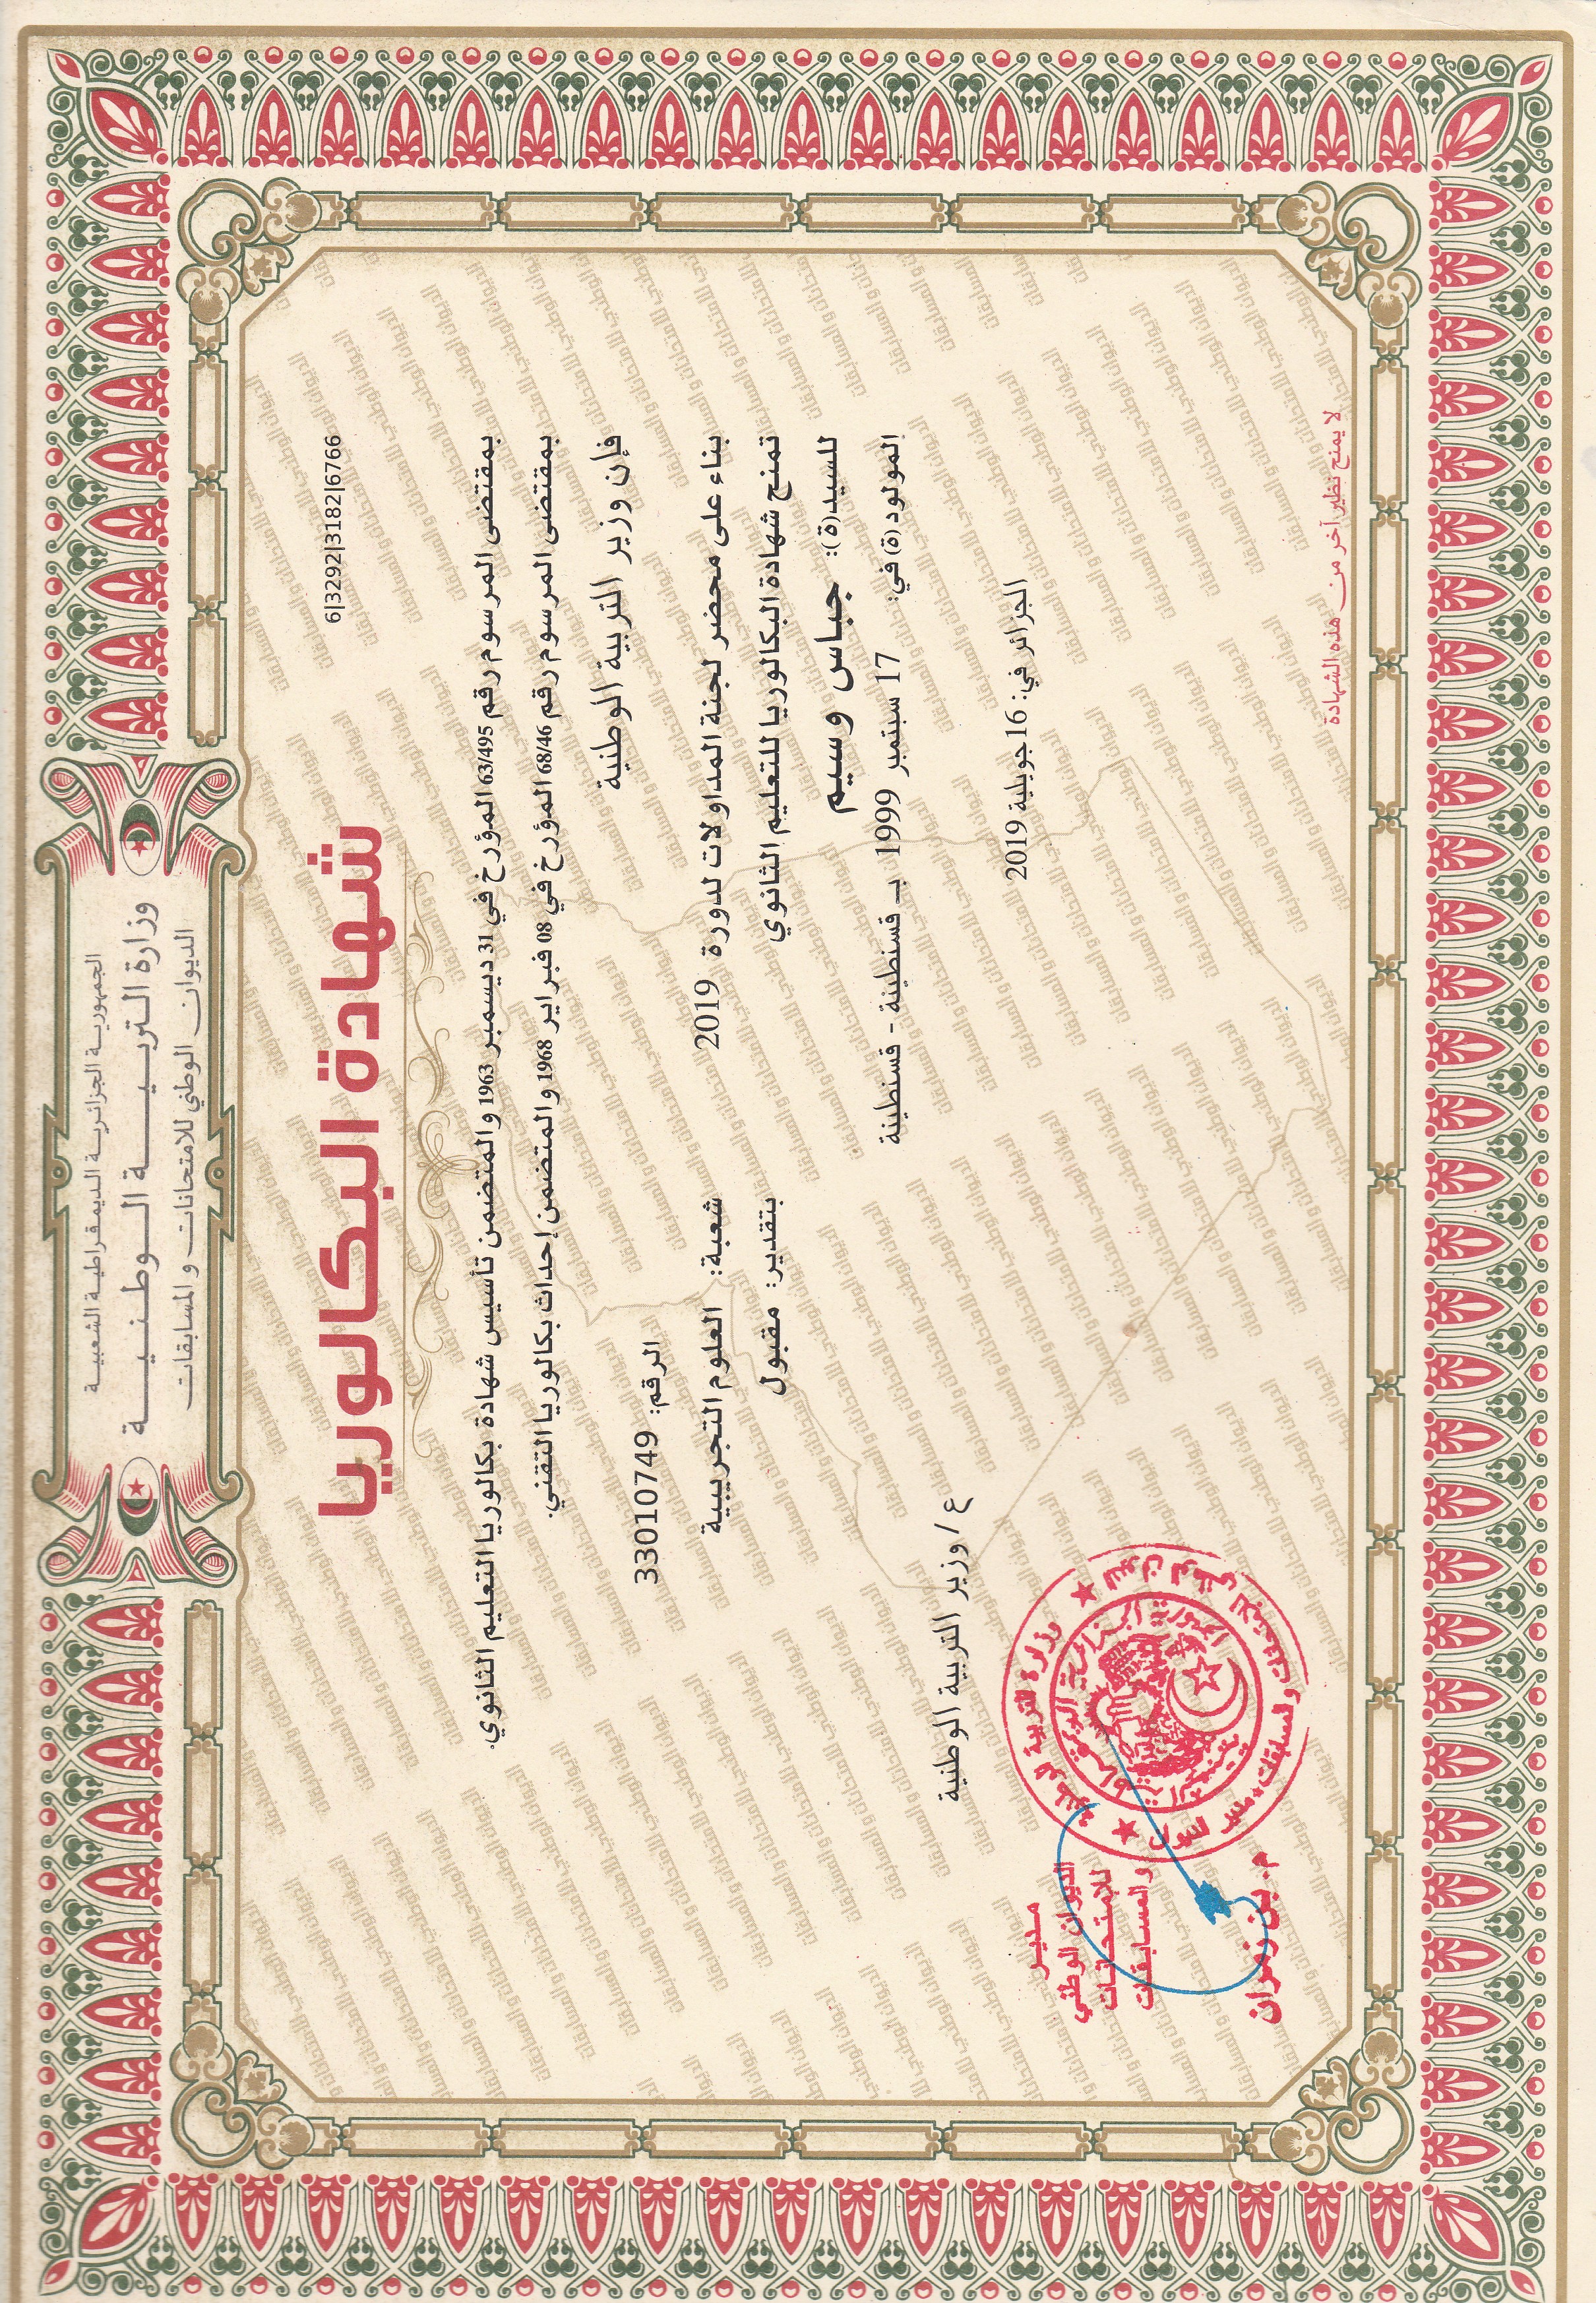 الجمهورية الجزائرية الديمقراطية الشعبية
وزارة التربية الوطنية
الديوان الوطني للامتحانات و المسابقات
6|3292|3182|6766
شهادة البكالوريا
بمقتضى المرسوم رقم 63/495 المؤرخ في 31 ديسمبر 1963 والمتضمن تأسيس شهادة بكالوريا التعليم الثانوي.
بمقتضى المرسوم رقم 68/46 المؤرخ في 08 فبراير 1968 والمتضمن إحداث بكالوريا التقني.
فإن وزير التربية الوطنية
الرقم: 33010749
بناء على محضر لجنة المداولات لدورة 2019 شعبة: العلوم التجريبية
تمنح شهادة البكالوريا للتعليم الثانوي بتقدير: مقبول
للسيد(ة): جباس وسيم
المولود(ة) في: 17 سبتمبر 1999 بـ قسنطينة - قسنطينة
ع/ وزير التربية الوطنية
الجزائر في: 16 جويلية 2019
وزارة التربية الوطنية
الديوان الوطني للامتحانات والمسابقات
مدير الديوان
الجمهورية الجزائرية الديمقراطية الشعبية
مدير
الديوان الوطني
للامتحانات
والمسابقات
م. بن زمران
لا يمنح نظير آخر من هذه الشهادة